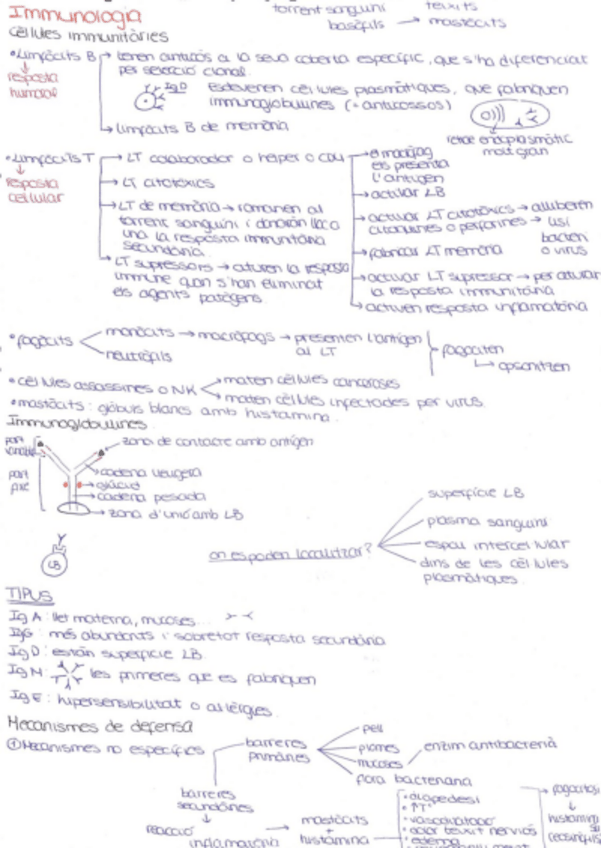 torrent sanguini
teixits
basòfils → mastòcits
Immunologia
Cèl·lules immunitàries
• Limfòcits B → tenen anticòs a la seva coberta específic, que s'ha diferenciat
per selecció clonal.
resposta
humoral
IgD
esdevenen cèl·lules plasmàtiques, que fabriquen
immunoglobulines (= anticossos)
→ Limfòcits B de memòria
reticle endoplasmàtic
molt gran
• Limfòcits T → LT colaborador o helper o CD4
resposta
cel·lular
→ LT citotòxics
→ LT de memòria → romanen al
torrent sanguini i donaran lloc a
una la resposta immunitària
secundària.
→ LT supressors → aturen la resposta
immune quan s'han eliminat
els agents patògens.
→ el macròfag
els presenta
l'antigen
→ activar LB
→ activar LT citotòxics → alliberen
citoquines o perforines → lisi
bacteri
o virus
→ fabricar LT memòria
→ activar LT supressor → per aturar
la resposta immunitària
→ activen resposta inflamatòria
• fagòcits
monòcits → macròfags → presenten l'antigen
al LT
neutròfils
fagociten
opsonitzen
• cèl·lules assassines o NK
maten cèl·lules canceroses
maten cèl·lules infectades per virus
• mastòcits: glòbuls blancs amb histamina.
Immunoglobulines
part
variable
part
fixe
→ zona de contacte amb antigen
→ cadena lleugera
→ glúcid
→ cadena pesada
→ zona d'unió amb LB
LB
on es poden localitzar?
superfície LB
plasma sanguini
espai intercel·lular
dins de les cèl·lules
plasmàtiques
TIPUS
Ig A: llet materna, mucoses...
IgG: més abundants i sobretot resposta secundària
Ig D: estan superfície LB.
Ig M: les primeres que es fabriquen
Ig E: hipersensibilitat o al·lèrgies
Mecanismes de defensa
① Mecanismes no específics
barreres
primàries
pell
mucoses
enzim antibacterià
flora bacteriana
barreres
secundàries
↓
reacció
inflamatòria
→ mastòcits
+
histamina
• diapedesi
• ↑Tª
• dolor teixit nerviós
• edema
↓